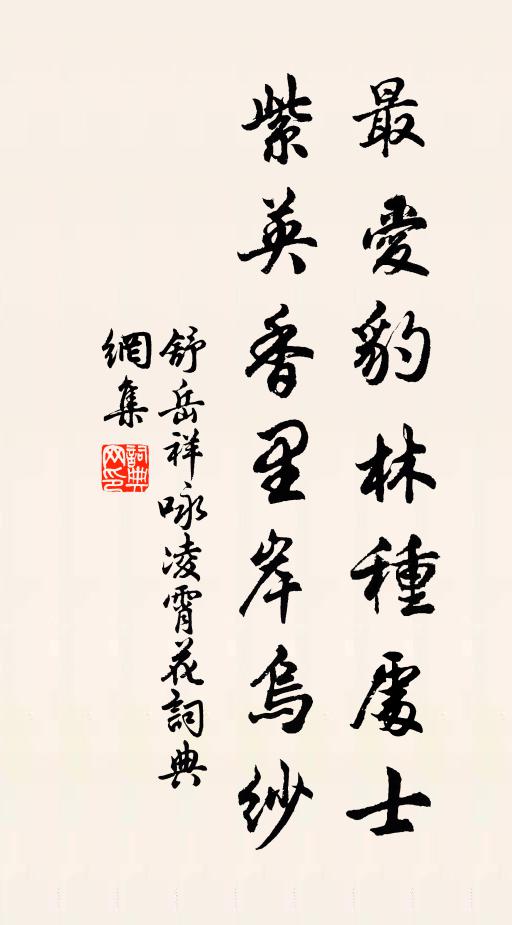 最愛豹林種處士
紫英香里岸烏紗
舒岳祥咏凌霄花詞典
網集
詞典
网印